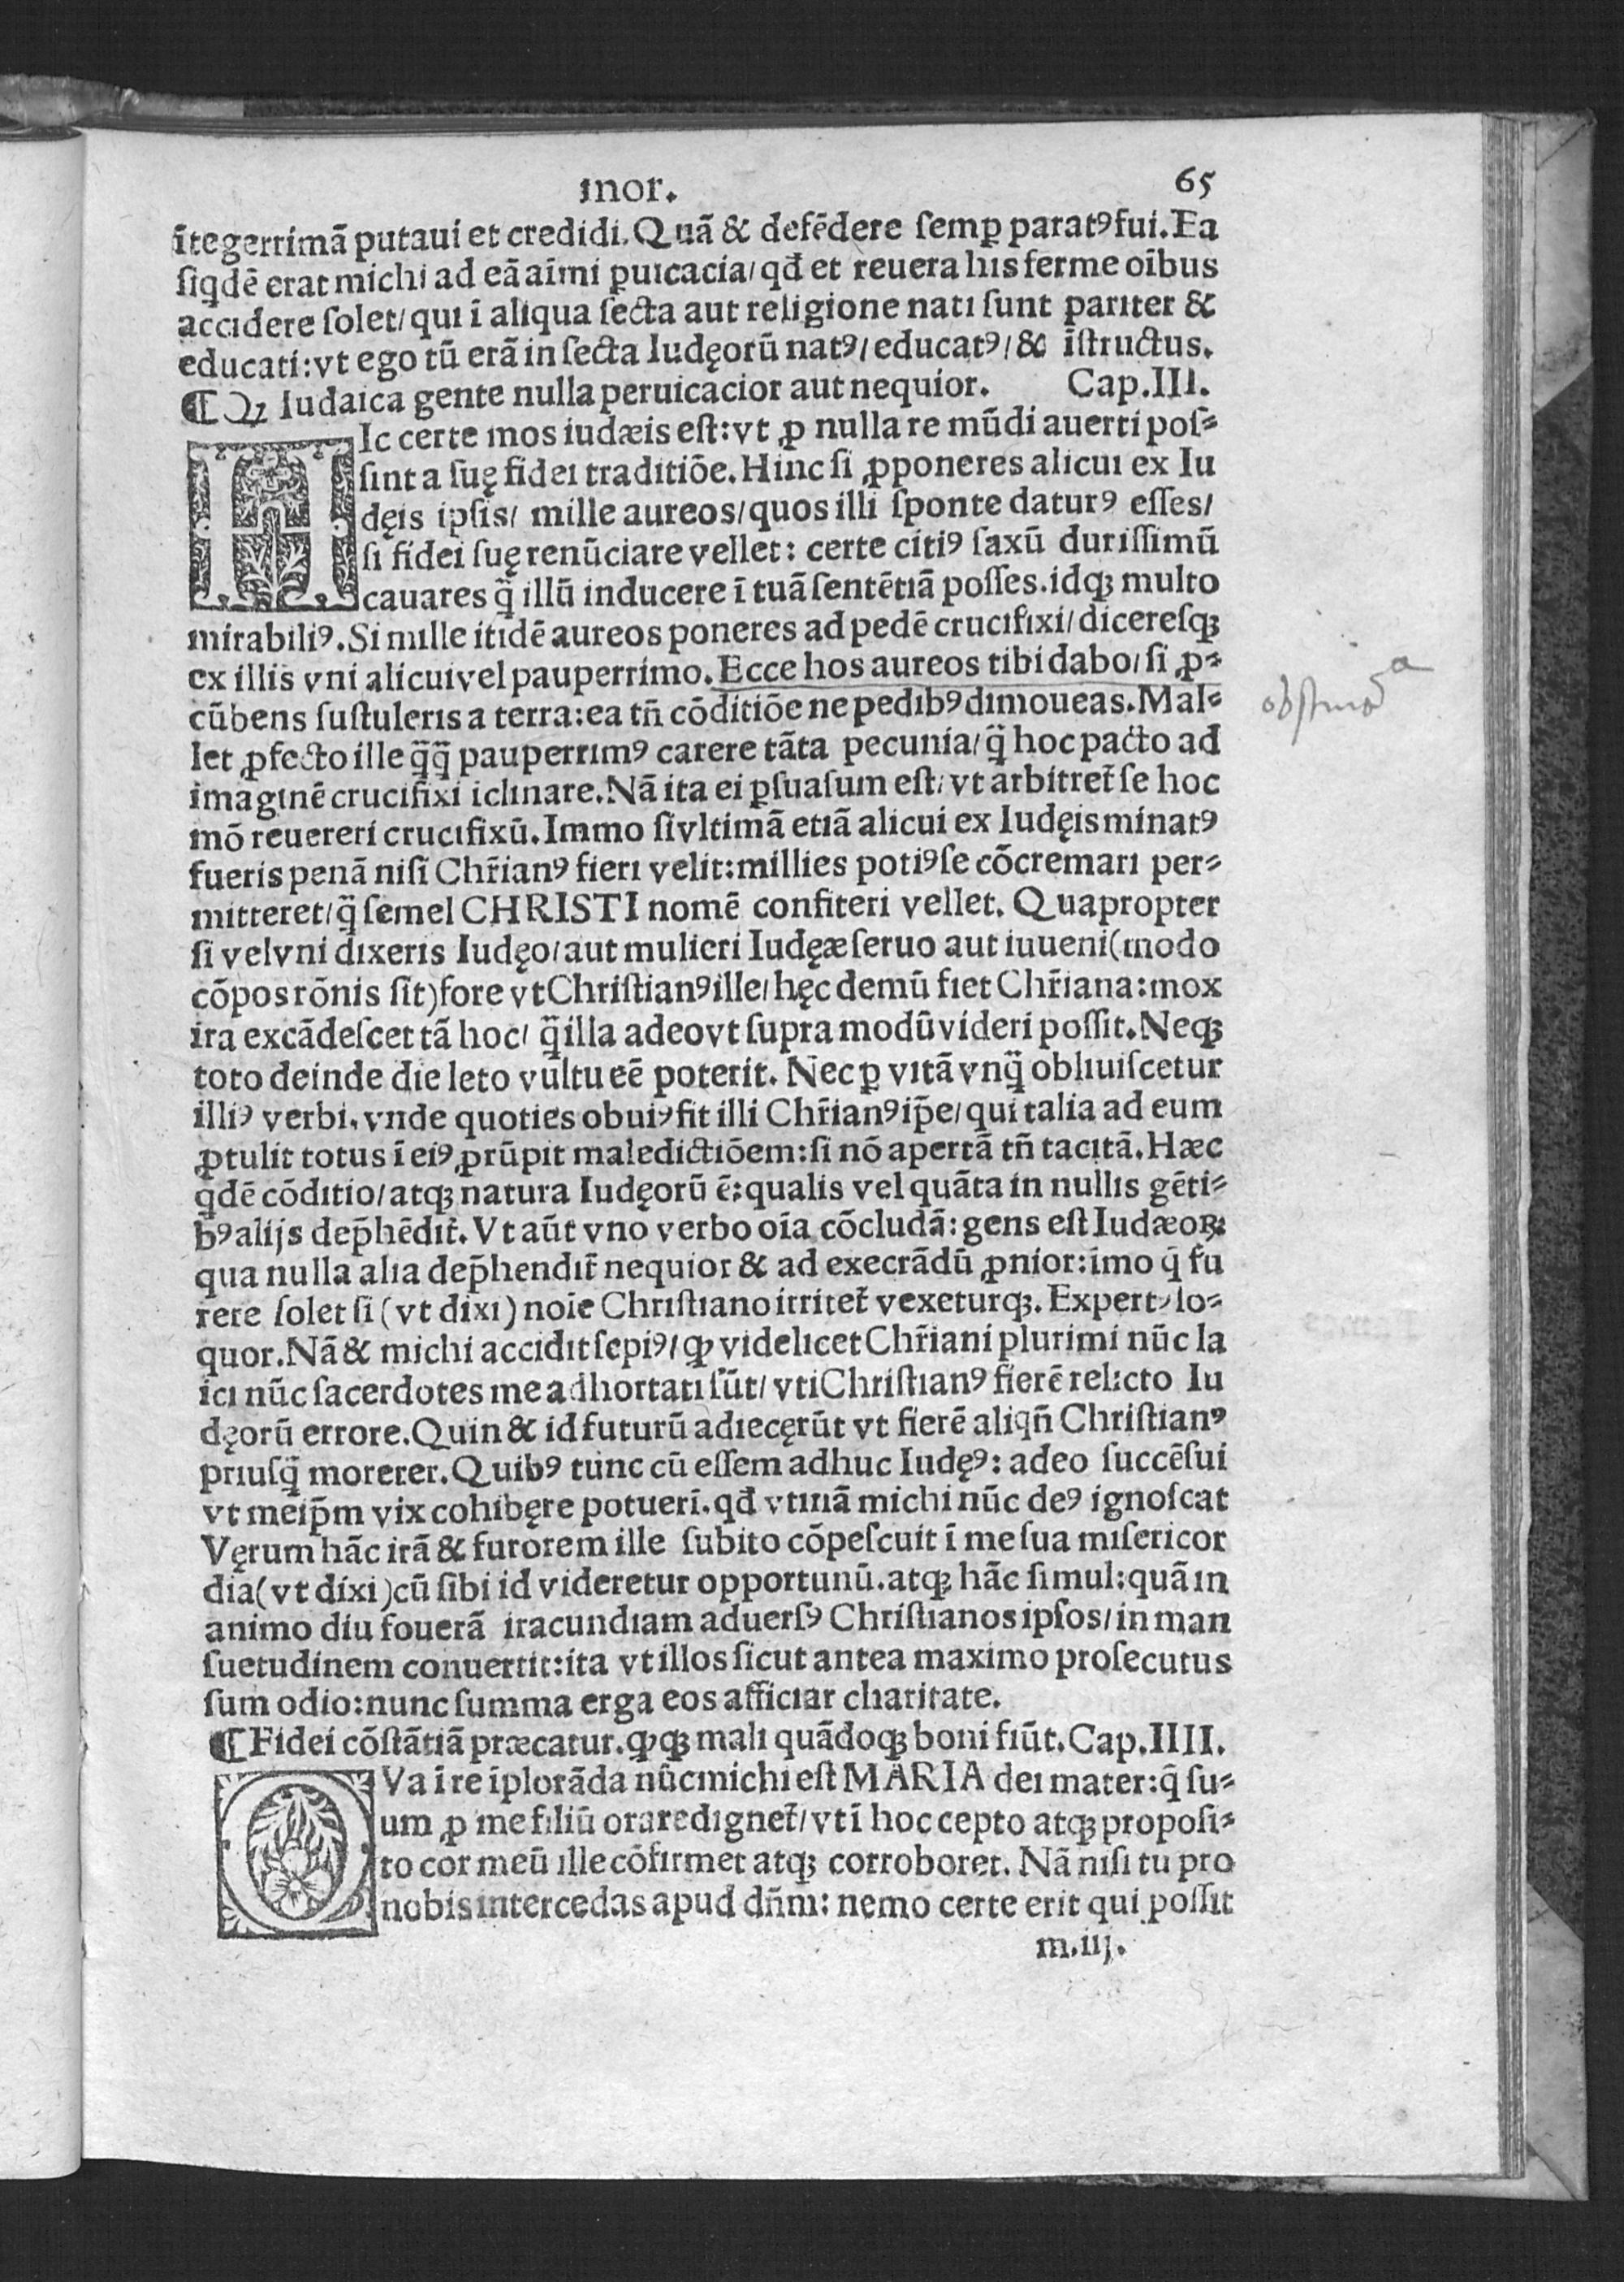 mor. 65
ītegerrimā putaui et credidi. Quā & defēdere ſemꝑ paratꝰ fui. Ea
ſiqdē erat michi ad eā aīmi ꝑuicacia/ qđ et reuera his ferme oībus
accidere ſolet/ qui ī aliqua ſecta aut religione nati ſunt pariter &
educati: vt ego tū erā in ſecta Iudęorū natꝰ/ educatꝰ/ & īſtructus.
¶ Qꝫ Iudaica gente nulla peruicacior aut nequior. Cap.III.
HIc certe mos iudæis eſt: vt ꝓ nulla re mūdi auerti poſ⸗
ſint a ſuę fidei traditiōe. Hinc ſi ꝓponeres alicui ex Iu
dęis ipſis/ mille aureos/ quos illi ſponte daturꝰ eſſes/
ſi fidei ſuę renūciare vellet: certe citiꝰ ſaxū duriſſimū
cauares q̄ illū inducere ī tuā ſentētiā poſſes. idqꝫ multo
mirabiliꝰ. Si mille itidē aureos poneres ad pedē crucifixi/ dicereſqꝫ
ex illis vni alicui vel pauperrimo. Ecce hos aureos tibi dabo/ ſi ꝓ⸗
cūbens ſuſtuleris a terra: ea tn̄ cōditiōe ne pedibꝰ dimoueas. Mal⸗
obſtinaōa
let ꝓfecto ille q̄q̄ pauperrimꝰ carere tāta pecunia/ q̄ hoc pacto ad
imaginē crucifixi iclinare. Nā ita ei ꝑſuaſum eſt/ vt arbitret̄ ſe hoc
mō reuereri crucifixū. Immo ſi vltimā etiā alicui ex Iudęis minatꝰ
fueris penā niſi Chr̄ianꝰ fieri velit: millies potiꝰ ſe cōcremari per⸗
mitteret/ q̄ ſemel CHRISTI nomē confiteri vellet. Quapropter
ſi vel vni dixeris Iudęo/ aut mulieri Iudęæ ſeruo aut iuueni (modo
cōpos rōnis ſit) fore vt Chriſtianꝰ ille/ hęc demū fiet Chr̄iana: mox
ira excādeſcet tā hoc/ q̄ illa adeo vt ſupra modū videri poſſit. Neqꝫ
toto deinde die leto vultu eē poterit. Nec ꝑ vitā vnq̄ obliuiſcetur
illiꝰ verbi. vnde quoties obuiꝰ fit illi Chr̄ianꝰ ip̄e/ qui talia ad eum
ꝓtulit totus ī eiꝰ ꝓrūpit maledictiōem: ſi nō apertā tn̄ tacitā. Hæc
qdē cōditio/ atqꝫ natura Iudęorū ē: qualis vel quāta in nullis gēti⸗
bꝰ alijs dep̄hēdit̄. Vt aūt vno verbo oīa cōcludā: gens eſt Iudæoꝝ:
qua nulla alia dep̄hendit̄ nequior & ad execrādū ꝓnior: imo q̄ fu
rere ſolet ſi (vt dixi) noīe Chriſtiano irritet̄ vexeturqꝫ. Expertꝰ lo⸗
quor. Nā & michi accidit ſepiꝰ/ ꝙ videlicet Chr̄iani plurimi nūc la
ici nūc ſacerdotes me adhortati ſūt/ vti Chriſtianꝰ fierē relicto Iu
dęorū errore. Quin & id futurū adiecęrūt vt fierē aliqn̄ Chriſtianꝰ
priuſq̄ morerer. Quibꝰ tunc cū eſſem adhuc Iudęꝰ: adeo ſuccēſui
vt meip̄m vix cohibęre potueri. qđ vtinā michi nūc deꝰ ignoſcat
Vęrum hāc irā & furorem ille ſubito cōpeſcuit ī me ſua miſericor
dia (vt dixi) cū ſibi id videretur opportunū. atqꝫ hāc ſimul: quā in
animo diu fouerā iracundiam aduerſꝰ Chriſtianos ipſos/ in man
ſuetudinem conuertit: ita vt illos ſicut antea maximo proſecutus
ſum odio: nunc ſumma erga eos afficiar charitate.
¶ Fidei cōſtātiā præcatur. ꝙqꝫ mali quādoqꝫ boni fiūt. Cap.IIII.
QVa ī re īplorāda nūc michi eſt MARIA dei mater: q̄ ſu⸗
um ꝓ me filiū orare dignet̄/ vti hoc cepto atqꝫ propoſi⸗
to cor meū ille cōfirmet atqꝫ corroboret. Nā niſi tu pro
nobis intercedas apud dn̄m: nemo certe erit qui poſſit
m.iij.